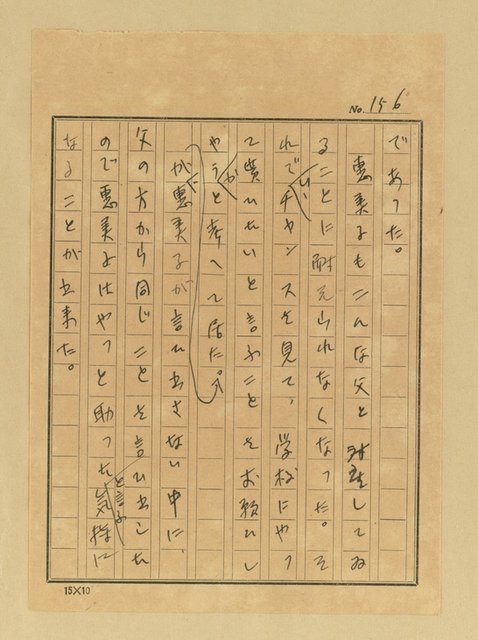 No. 156
であった。
恵美子もこんな父と対座してゐ
ることに耐えられなくなった。そ
れでいゝチャンスを見て、学校にやつ
て貰ひたいと言ふことをお願ひし
やうかと考へて居た。
が恵美子が言ひ出さない中に、
父の方から同じことを言ひ出した
ので恵美子はやつと助つたと言ふ気持に
なることが出来た。
15×10